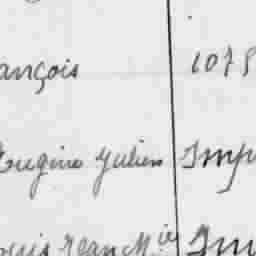 ançois 107
Eugène Julien Imp
ouis Jean Mie Im